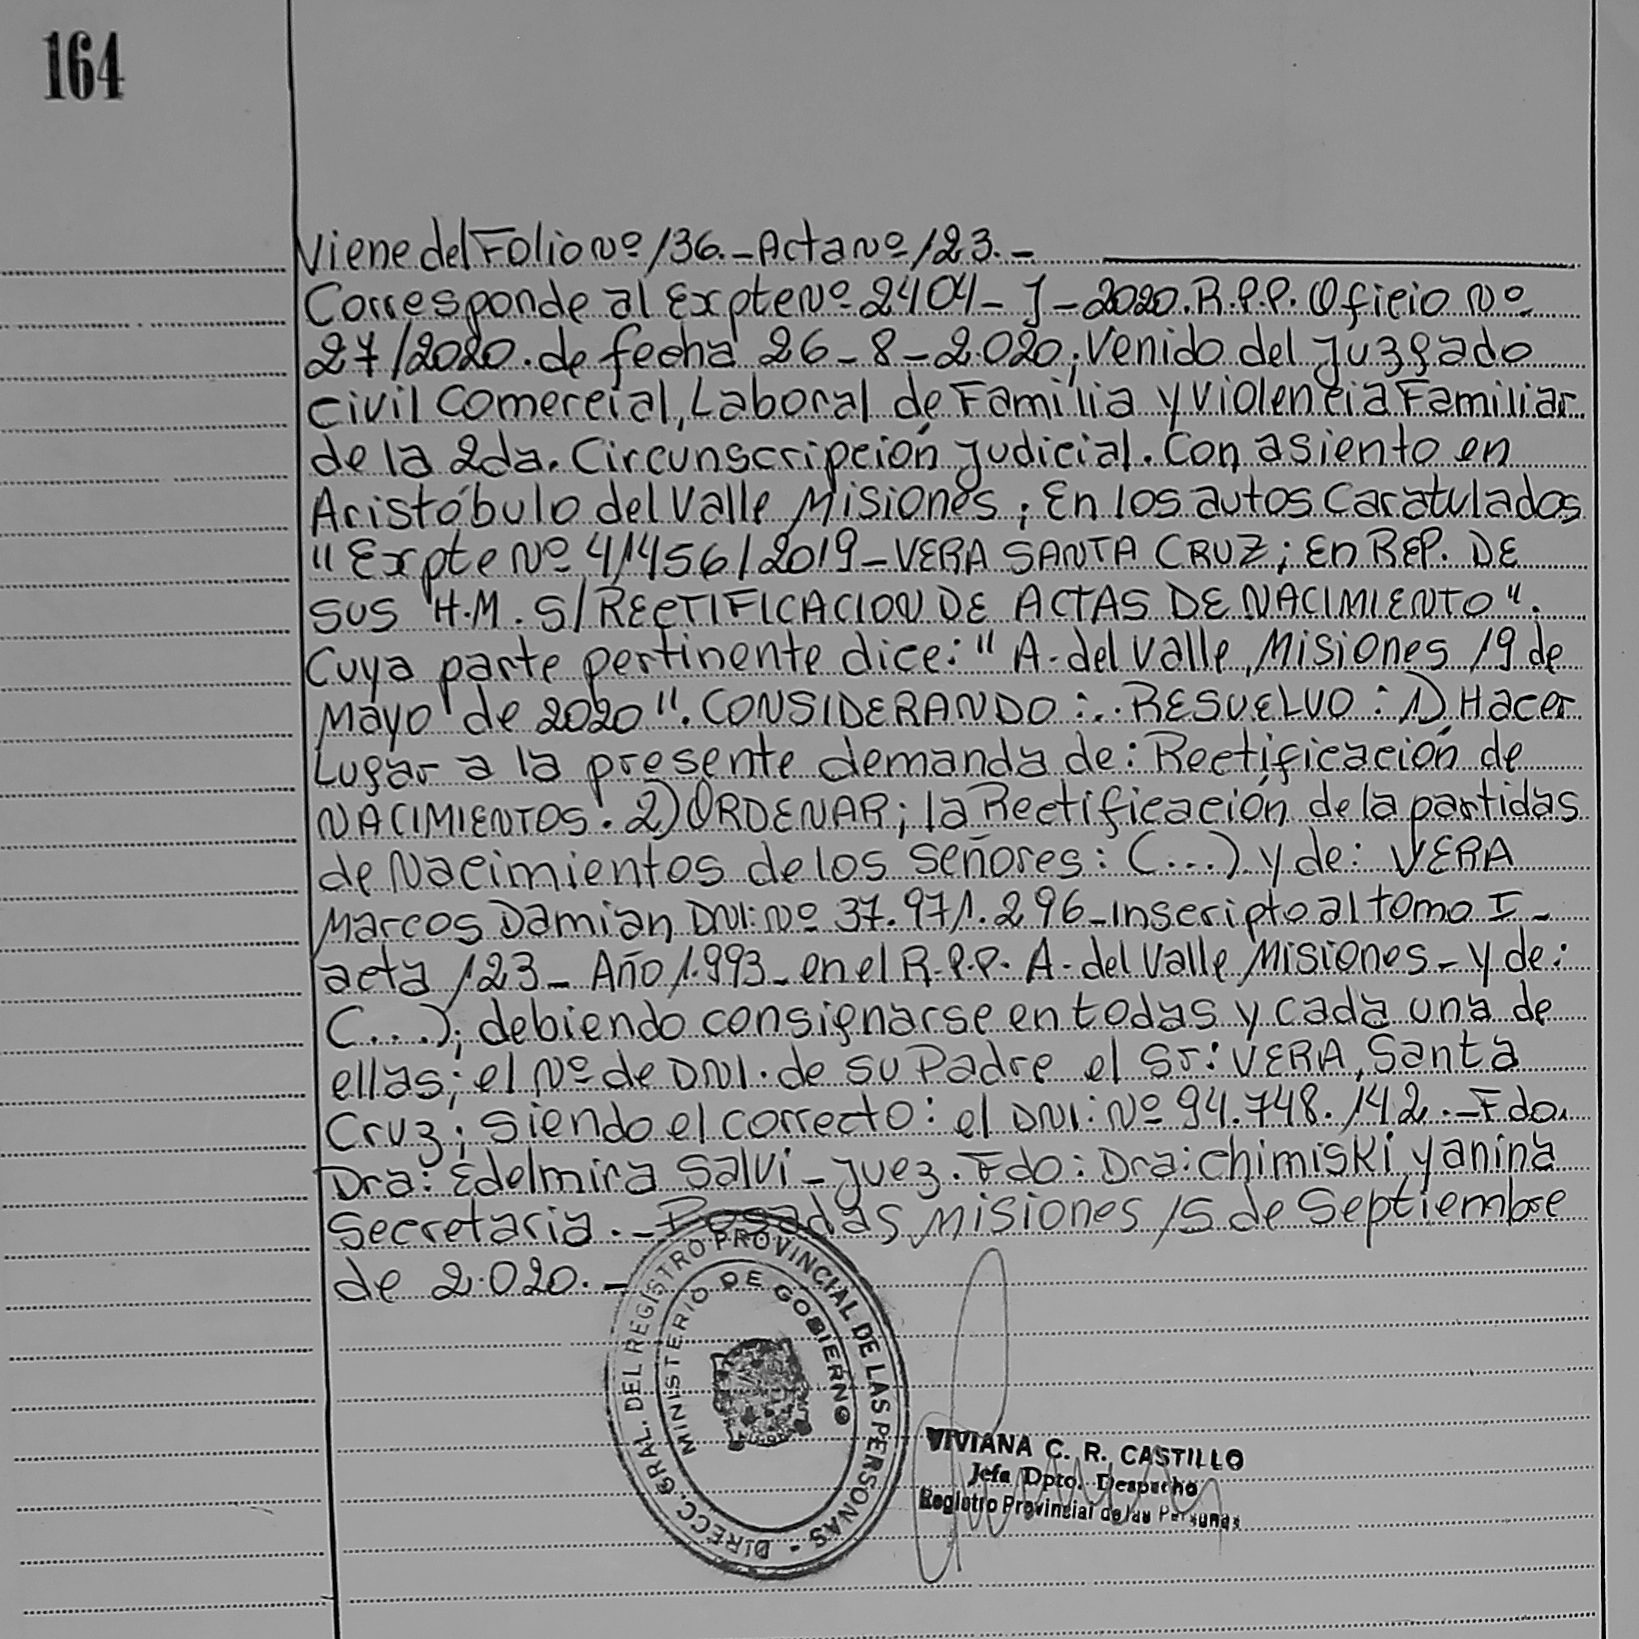 164
Viene del Folio Nº 136.- Acta Nº 123.-
Corresponde al Expte Nº 2404-J-2020.R.P.P. Oficio Nº
27/2020. de fecha 26-8-2.020; Venido del Juzgado
Civil Comercial, Laboral de Familia y Violencia Familiar.
de la 2da. Circunscripción Judicial. Con asiento en
Aristóbulo del Valle Misiones; En los autos Caratulados
"Expte Nº 41456/2019-VERA SANTA CRUZ; En REP. DE
SUS H.M. S/RECTIFICACION DE ACTAS DE NACIMIENTO".
Cuya parte pertinente dice: "A. del Valle, Misiones 19 de
Mayo de 2020". CONSIDERANDO:.. RESUELVO: 1) Hacer
Lugar a la presente demanda de: Rectificación de
NACIMIENTOS. 2) ORDENAR; la Rectificación de la partidas
de Nacimientos de los señores: (...) y de: VERA
Marcos Damian DNI: Nº 37.971.296-Inscripto al tomo I-
acta 123- Año 1.993- en el R.P.P. A. del Valle Misiones- y de:
(....); debiendo consignarse en todas y cada una de
ellas; el Nº de DNI. de su Padre el Sr: VERA, Santa
Cruz; siendo el correcto: el DNI: Nº 94.748.142.-Fdo.
Dra: Edelmira Salvi-Juez. Fdo: Dra: Chimiski Yanina
Secretaria.- Posadas Misiones 15 de Septiembre
de 2.020.-
DIRECC. GRAL. DEL REGISTRO PROVINCIAL DE LAS PERSONAS -
MINISTERIO DE GOBIERNO
VIVIANA C. R. CASTILLO
Jefa Dpto. Despacho
Registro Provincial de las Personas